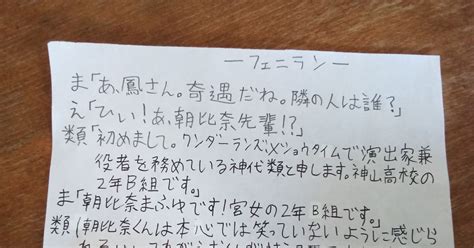 ーフェニランー
ま「あ、鳳さん。奇遇だね。隣の人は誰？」
え「ひぃ！あ、朝比奈先輩！？」
類「初めまして。ワンダーランズ×ショウタイムで演出家兼
役者を務めている神代類と申します。神山高校の
2年B組です。」
ま「朝比奈まふゆです！宮女の2年B組です。」
類（朝比奈くんは本心では笑っていないように感じら